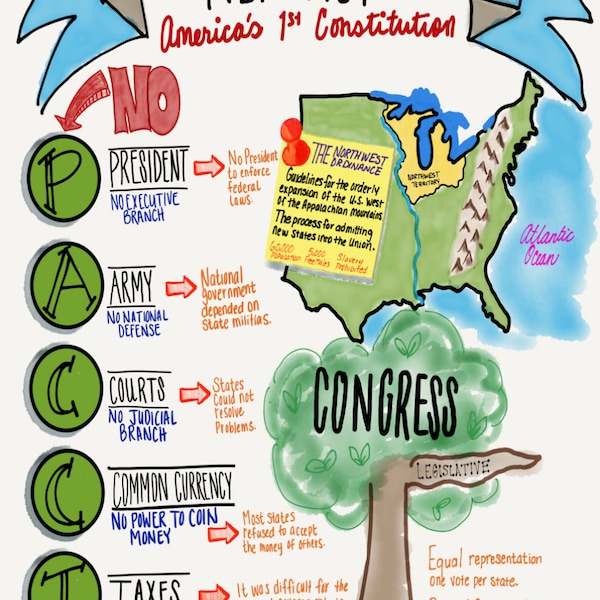 America's 1st Constitution
NO
P
PRESIDENT
NO EXECUTIVE
BRANCH
No President
to enforce
federal
laws.
THE NORTHWEST
ORDINANCE
Guidelines for the orderly
expansion of the U.S. West
of the Appalachian mountains
The process for admitting
new States into the Union.
60,000
Population
5,000
Free Males
Slavery
Prohibited
NORTHWEST
TERRITORY
Atlantic
Ocean
A
ARMY
NO NATIONAL
DEFENSE
National
government
depended on
State militias.
C
COURTS
NO JUDICIAL
BRANCH
States
Could not
resolve
Problems.
CONGRESS
LEGISLATIVE
C
COMMON CURRENCY
NO POWER TO COIN
MONEY
Most States
refused to accept
the money of others.
Equal representation
one vote per state.
T
TAXES
It was difficult for the